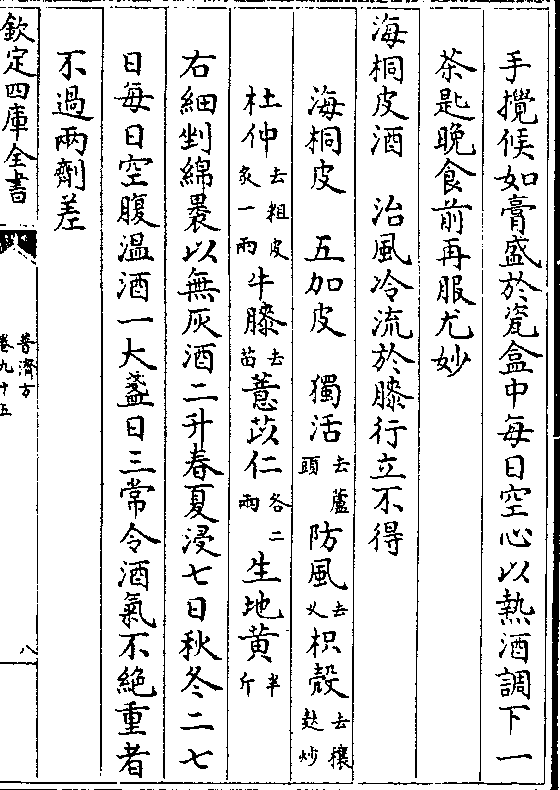 手攪候如膏盛於瓷盒中每日空心以熱酒調下一
茶匙晚食前再服尤妙
海桐皮酒　治風冷流於膝行立不得
海桐皮　五加皮　獨活去蘆頭防風去乂枳殼去穰麩炒
杜仲去粗皮炙一兩牛膝去苗薏苡仁各二兩生地黃半斤
右細剉綿褁以無灰酒二升春夏浸七日秋冬二七
日每日空腹温酒一大盞日三常令酒氣不絶重者
不過兩劑差
欽定四庫全書
普濟方
卷九十五
八